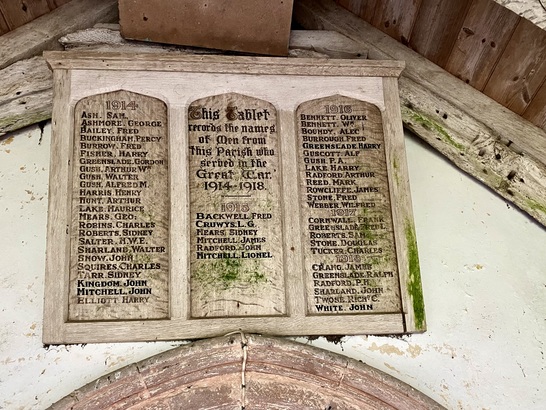 1914
ASH, SAM.
ASHMORE, GEORGE
BAILEY, FRED
BUCKINGHAM, PERCY
BURROW, FRED
FISHER, HARRY
GREENSLADE, GORDON
GUSH, ARTHUR Wm
GUSH, WALTER
GUSH, ALFRED M.
HARRIS, HENRY
HOYT, ARTHUR
LAKE, MAURICE
MEARS, GEO.
ROBINS, CHARLES
ROBERTS, SIDNEY
SALTER, H.W.E.
SHARLAND, WALTER
SNOW, JOHN
SQUIRES, CHARLES
TARR, SIDNEY
KINGDOM, JOHN
MITCHELL, JOHN
ELLIOTT, HARRY
This Tablet
records the names
of Men from
this Parish who
served in the
Great War.
1914-1918.
1915
BACKWELL, FRED
CRUWYS, L.G.
MEARS, SIDNEY
MITCHELL, JAMES
RADFORD, JOHN
MITCHELL, LIONEL
1916
BENNETT, OLIVER
BENNETT, Wm
BOUNDY, ALEC
BURROUGH, FRED
GREENSLADE, HARRY
GUSCOTT, ALF
GUSH, P.A.
LAKE, HARRY
RADFORD, ARTHUR
REED, MARK
ROWCLIFFE, JAMES
STONE, FRED
WEBBER, WILFRED
1917
CORNWALL, FRANK
GREENSLADE,
ROBERTS, SAM
STONE, DOUGLAS
TUCKER, CHARLES
1918
CHANG, JAMES
GREENSLADE, RALPH
RADFORD, P.H.
SHARLAND, JOHN
TWOSE, RICHd C.
WHITE, JOHN